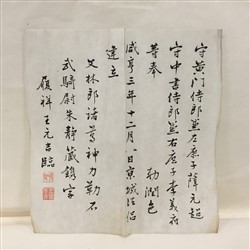 守黄門侍郎兼左庶子薛元超
守中書侍郎兼右庶子李義府
等奉 勅潤色
咸亨三年十二月八日京城法侶
建立
文林郎諸葛神力勒石
武騎尉朱静藏鐫字
履祥王元吉臨